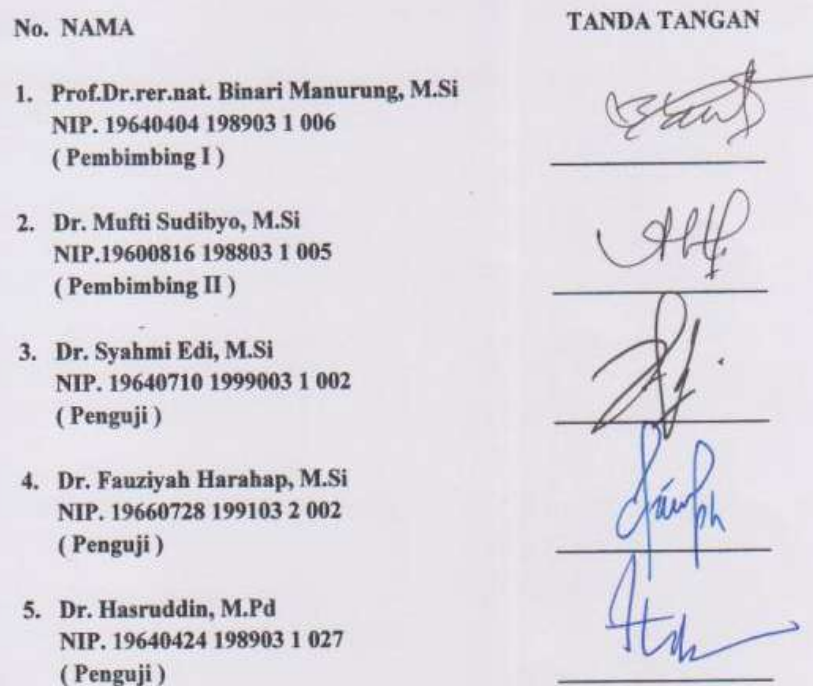 No. NAMA TANDA TANGAN
1. Prof.Dr.rer.nat. Binari Manurung, M.Si
NIP. 19640404 198903 1 006
( Pembimbing I )
2. Dr. Mufti Sudibyo, M.Si
NIP.19600816 198803 1 005
( Pembimbing II )
3. Dr. Syahmi Edi, M.Si
NIP. 19640710 1999003 1 002
( Penguji )
4. Dr. Fauziyah Harahap, M.Si
NIP. 19660728 199103 2 002
( Penguji )
5. Dr. Hasruddin, M.Pd
NIP. 19640424 198903 1 027
( Penguji )